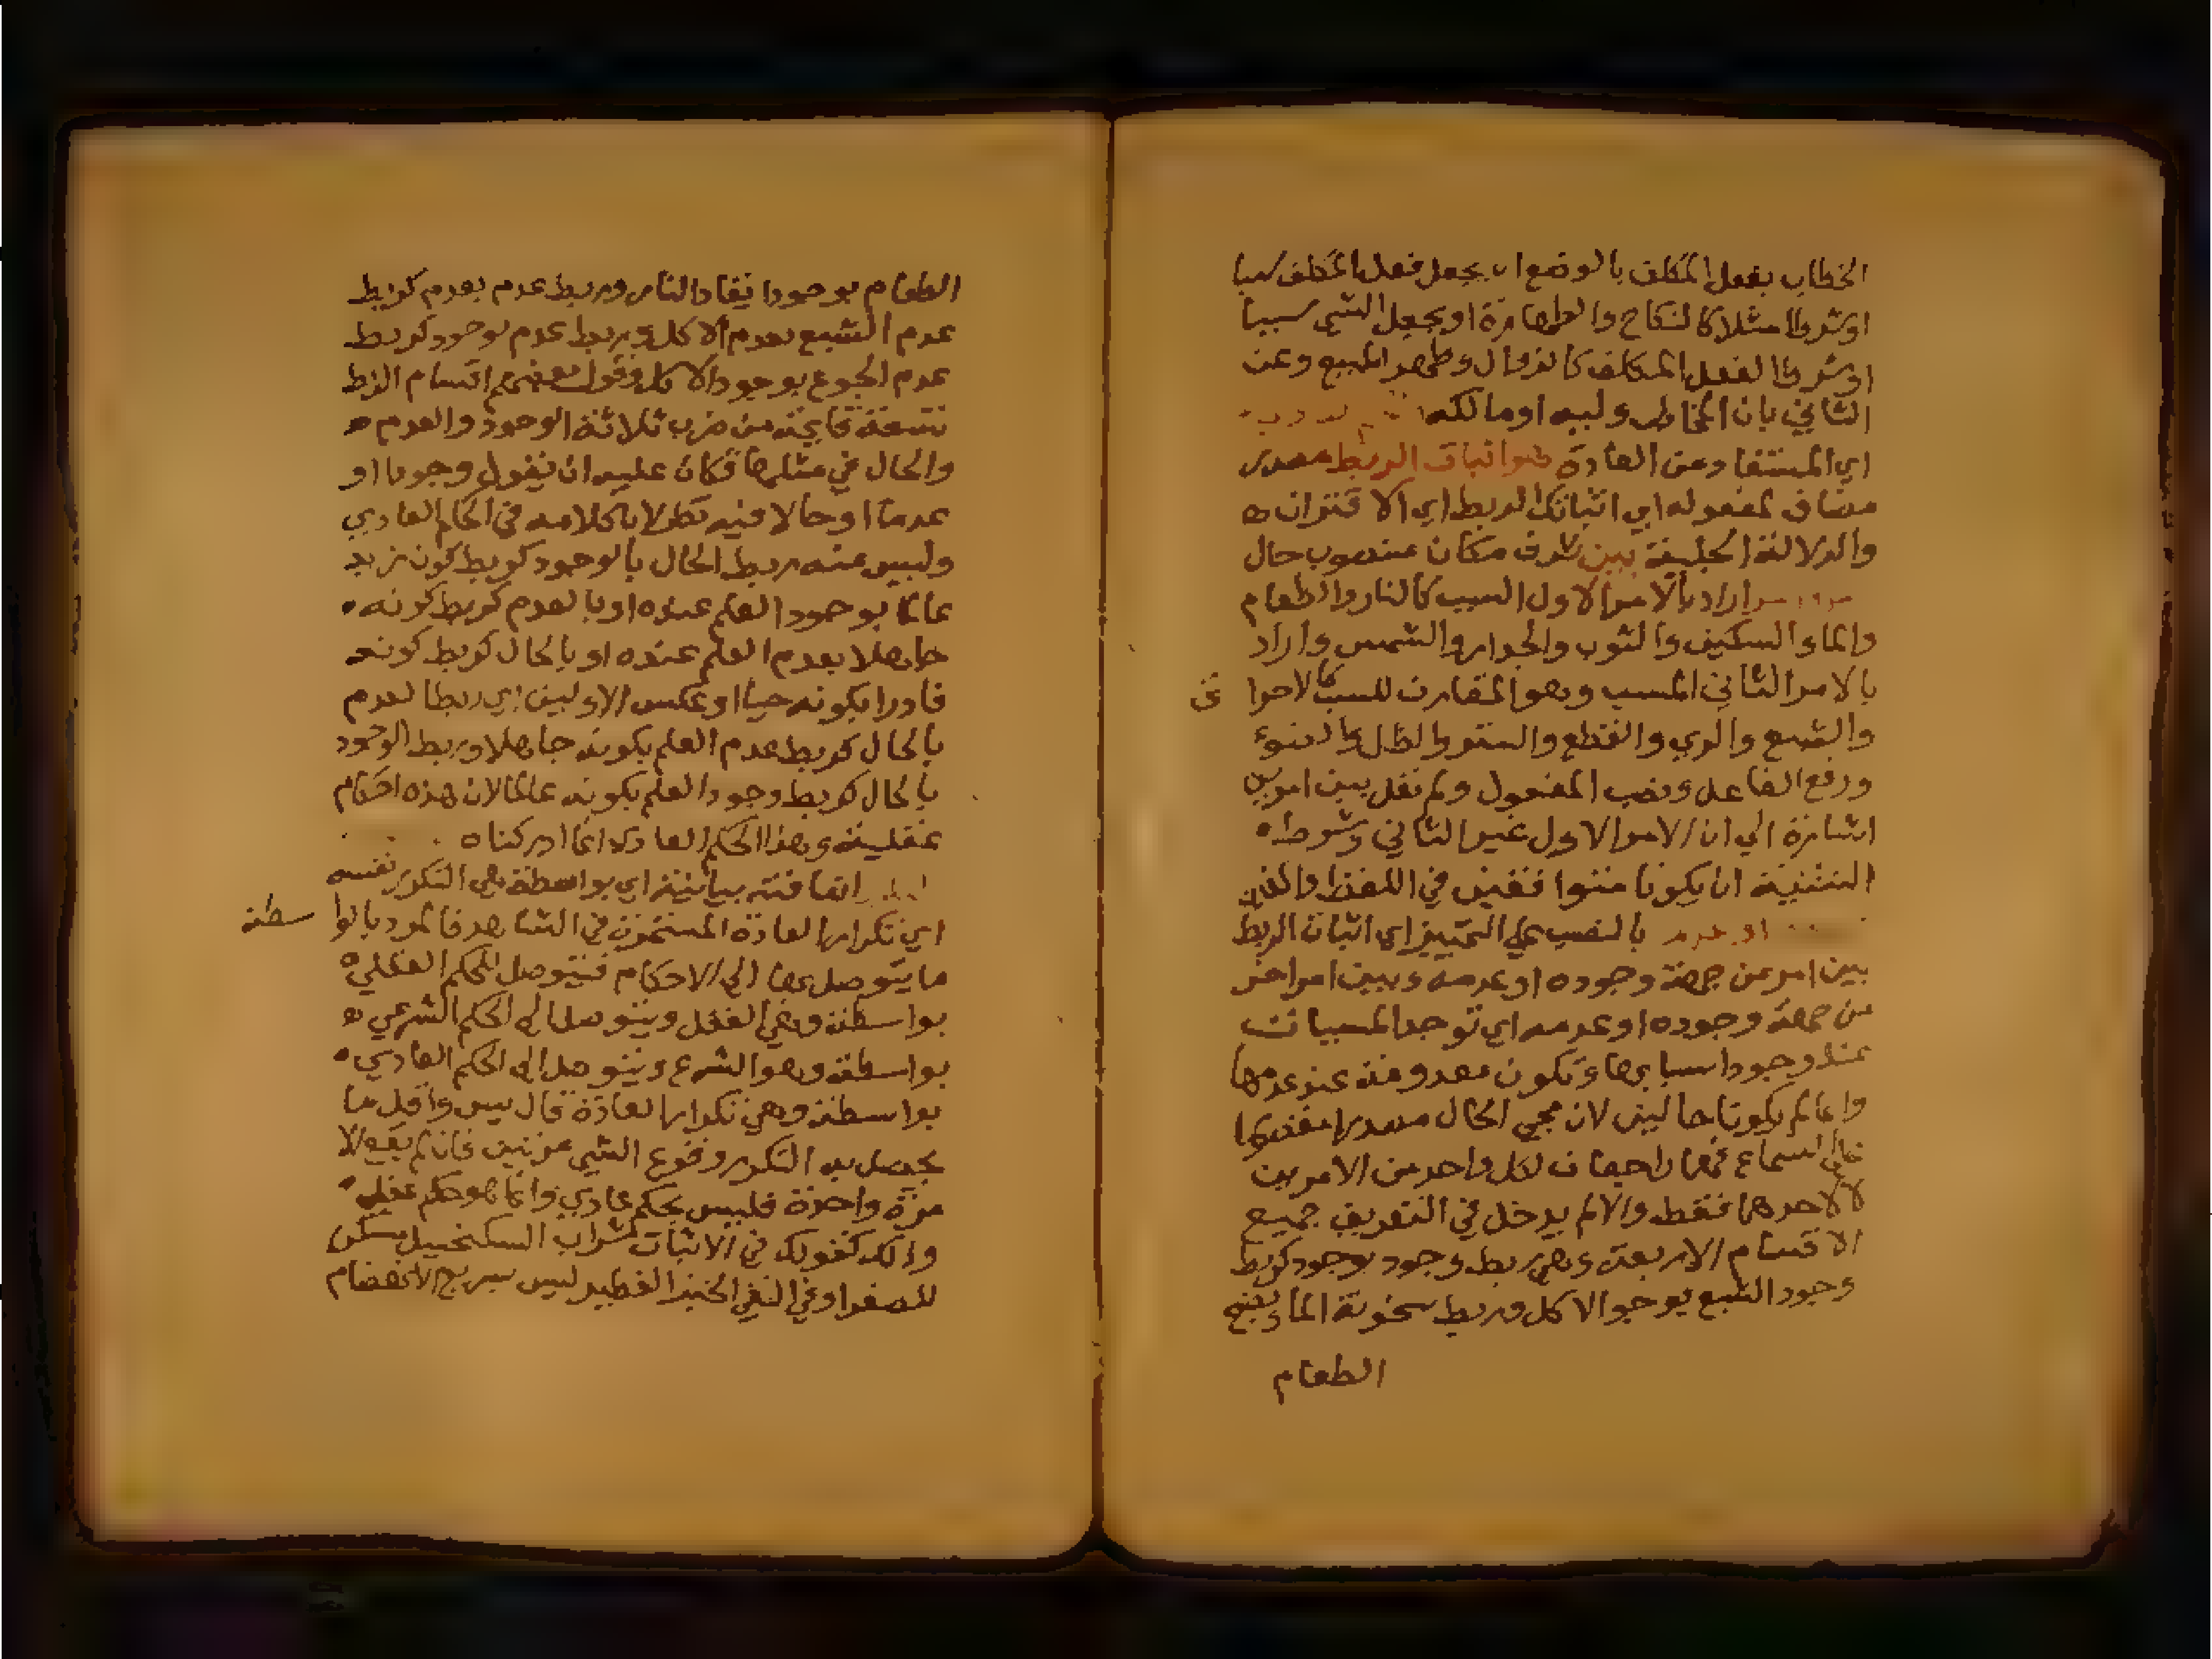 الخطاب بفعل المكلف بالوضع ان يجعل فعل المكلف سببا
اوشرطا مثلا كالنكاح والطهارة او يجعل الشي سببا
اوشرطا لفعل المكلف كالزوال وطهر المبيع وعن
الثاني بان المخاطب وليه او مالكه
اي المستفاد من العادة هو اثبات الربط مصدر
مضاف لمفعوله اي اثباتك الربط اي الاقتران
والدلالة الجلية بين ظرف مكان منصوب حال
اراد بالامر الاول السبب كالنار والطعام
والما والسكين والثوب والجدار والشمس واراد
بالامر الثاني المسبب وهو المقارن للسبب كالاحرا ق
والشبع والري والقطع والستر والظل والضوء
ورفع الفاعل ونصب المفعول ولم نقل بين امرين
اشارة الي ان الامر الاول غير الثاني وشرط
التثنية ان يكونا متوافقين في اللفظ والمعنى
او عدم بالنصب علي التمييز اي اثبات الربط
بين امر من جهة وجوده او عدمه وبين امر اخر
من جهة وجوده او عدمه اي توجد المسببات
عند وجود اسبابها وتكون معدومة عند عدمها
وانما لم يكونا حالين لان مجي الحال مصدرا مقصورا
علي السماع فهما راجعان لكل واحد من الامرين
لا لاحدهما فقط والا لم يدخل في التعريف جميع
الاقسام الاربعة وهي ربط وجود بوجود كربط
وجود الشبع بوجو الاكل وربط سخونة الما ونضج
الطعام
الطعام بوجود ايقاد النار وربط عدم بعدم كربط
عدم الشبع بعدم الاكل وربط عدم بوجود كربط
عدم الجوع بوجود الاكل وقول بعضهم اقسام الربط
تسعة قايمة من ضرب ثلاثة الوجود والعدم
والحال في مثلها فكان عليه ان يقول وجودا او
عدما او حالا فيه نظر لان كلامه في الحكم العادي
وليس منه ربط الحال بالوجود كربط كون زيد
عالما بوجود العلم عنده او بالعدم كربط كونه
جاهلا بعدم العلم عنده او بالحال كربط كونه
قادرا بكونه حيا او عكس الاولين اي ربطا لعدم
بالحال كربط عدم العلم بكونه جاهلا وربط الوجود
بالحال كربط وجود العلم بكونه عالما لان هذه احكام
عقلية وهذا الحكم العادي انما ادركناه
اضافته بيانية اي بواسطة هي التكرر نفسه
اي تكرار العادة المستمرة في الشاهد فالمرد بالوا سطة
ما يتوصل بها الي الاحكام فيتوصل للحكم العقلي
بواسطة وهي العقل ويتوصل الي الحكم الشرعي
بواسطة وهو الشرع ويتوصل الي الحكم العادي
بواسطة وهي تكرار العادة قال يس واقل ما
يحصل به التكرر وقوع الشي مرتين فان لم يقع الا
مرة واحدة فليس بحكم عادي وانما هو حكم عقلي
وذلك كقولك في الاثبات شراب السكنجبيل مسكن
للصفرا وفي النفي الخبز الفطير ليس سريع الانهضام